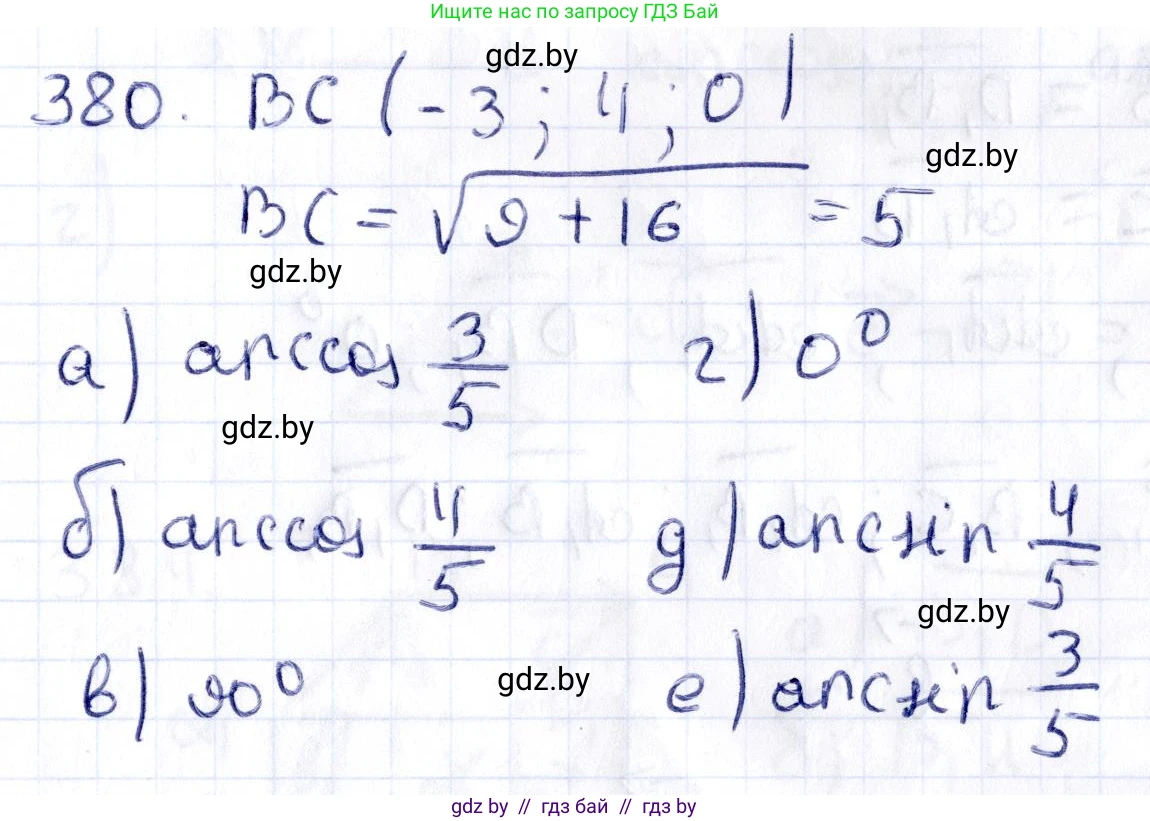 Ищите нас по запросу ГДЗ Бай
gdz.by
380. BC (-3; 4; 0)
gdz.by
BC = √9+16 = 5
gdz.by
а) arccos 3/5 г) 0°
gdz.by
б) arccos 4/5 д) arcsin 4/5
gdz.by
в) 90° gdz.by е) arcsin 3/5
gdz by // гдз бай // гдз by